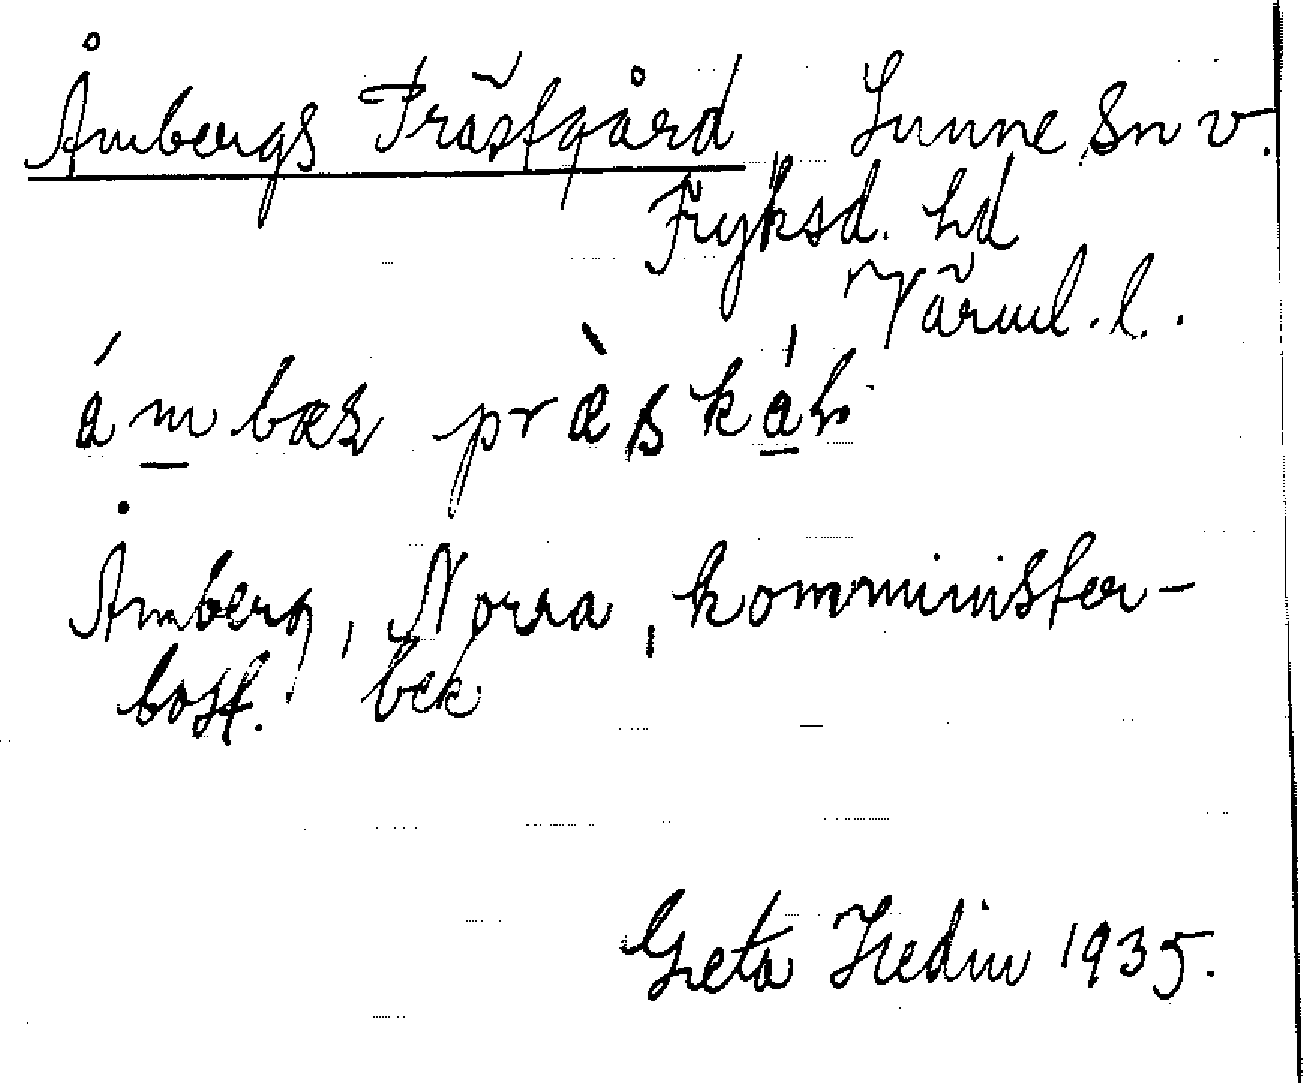 Åmbergs Prästgård Sunne Sn v.
Fryksd. hd
Värml. l.
Åmberg, Norra, komminister-
bost. bek
Greta Hedin 1935.